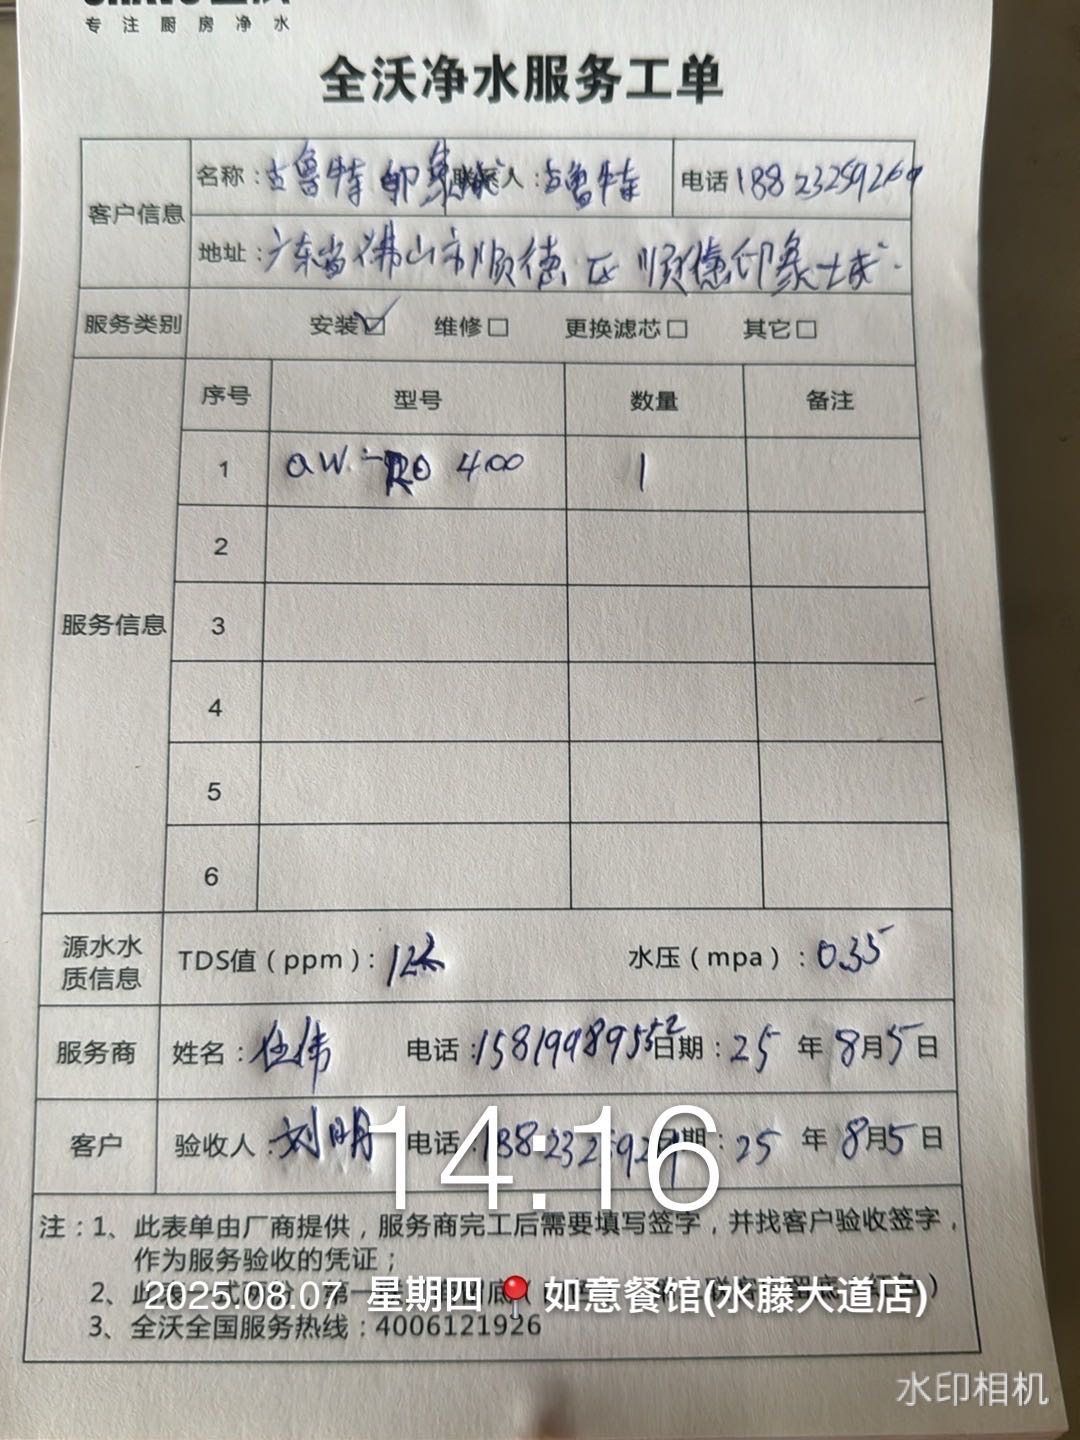 专注厨房净水
全沃净水服务工单
客户信息 名称：古鲁特印象城 联系人：古鲁特 电话
地址：广东省佛山市顺德区顺德印象城
服务类别 安装☑ 维修□ 更换滤芯□ 其它□
服务信息 序号 型号 数量 备注
1 QW-RO 400 1
2
3
4
5
6
源水水质信息 TDS值（ppm）： 水压（mpa）：0.35
服务商 姓名：任伟 电话： 日期：25年8月5日
客户 验收人：刘明 电话： 日期：25年8月5日
14:16
注：1、此表单由厂商提供，服务商完工后需要填写签字，并找客户验收签字，
作为服务验收的凭证；
2、此表一式两份，第一
2025.08.07 星期四 如意餐馆(水藤大道店)
3、全沃全国服务热线：4006121926
水印相机